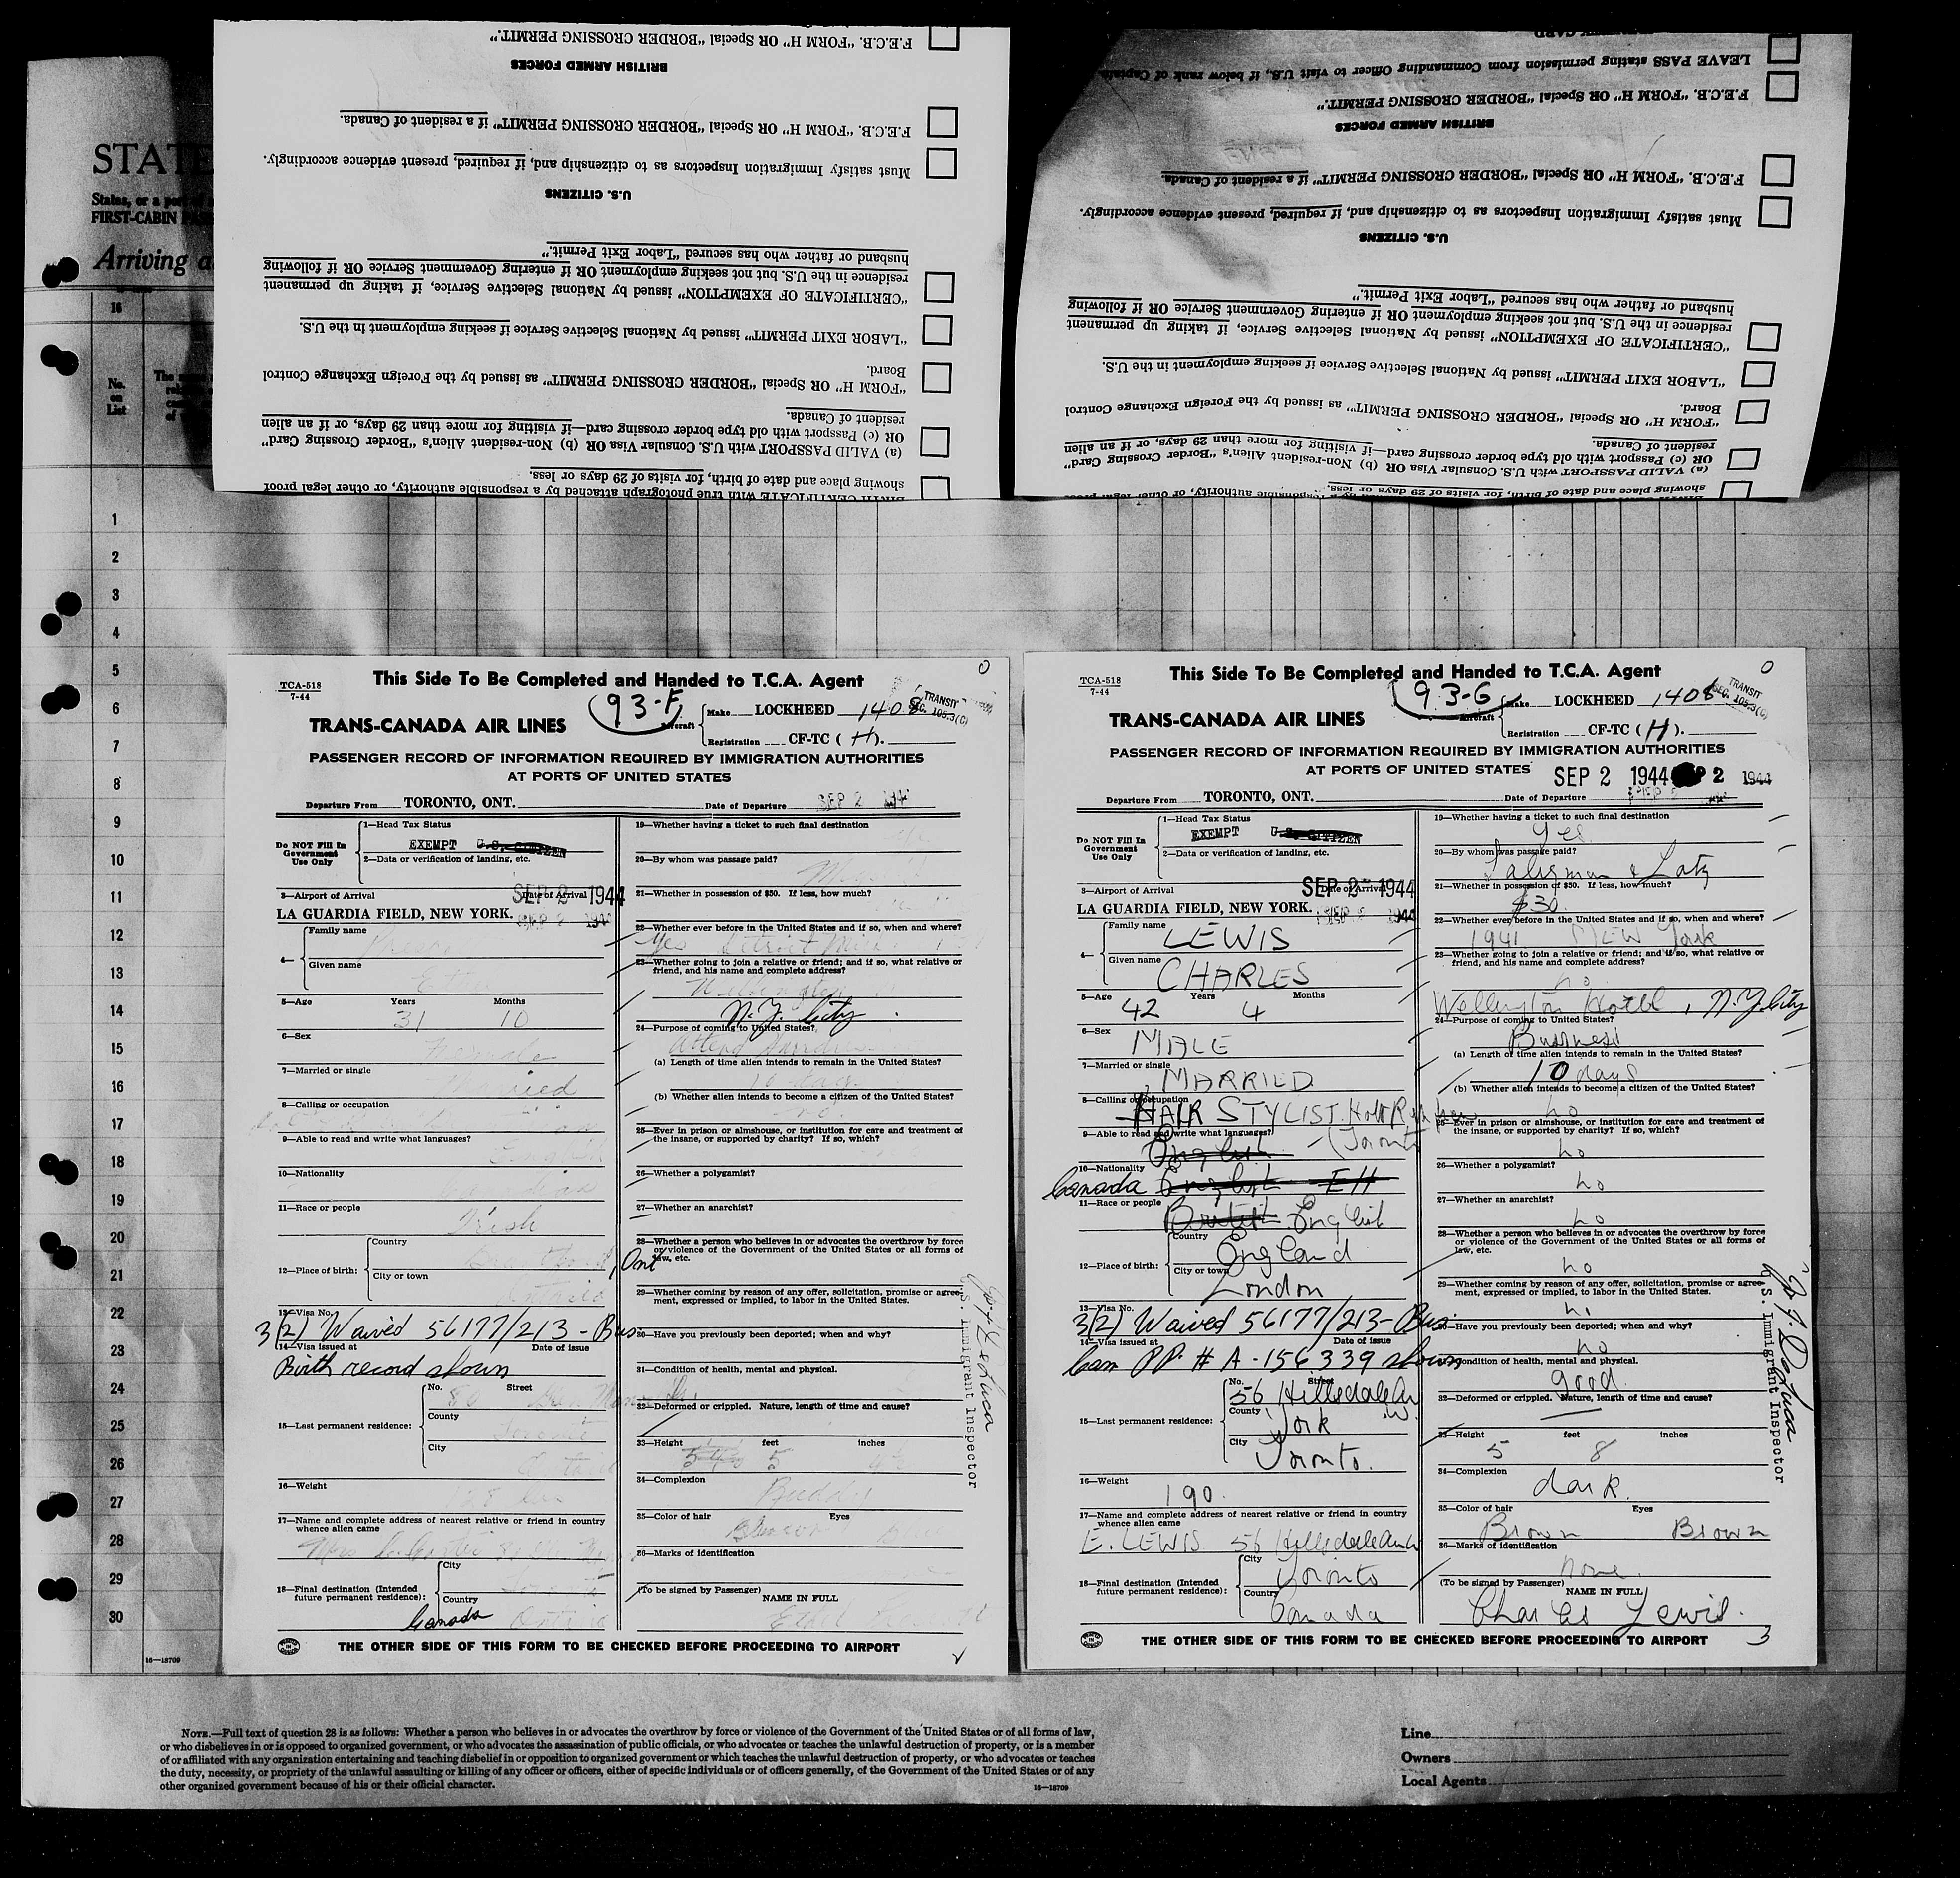 F.E.C.B. "FORM H" OR Special "BORDER CROSSING PERMIT."
BRITISH ARMED FORCES
F.E.C.B. "FORM H" OR Special "BORDER CROSSING PERMIT" if a resident of Canada.
Must satisfy Immigration Inspectors as to citizenship and, if required, present evidence accordingly.
U.S. CITIZENS
husband or father who has secured "Labor Exit Permit."
residence in the U.S. but not seeking employment OR if entering Government Service OR if following
"CERTIFICATE OF EXEMPTION" issued by National Selective Service, if taking up permanent
"LABOR EXIT PERMIT" issued by National Selective Service if seeking employment in the U.S.
Board.
"FORM H" OR Special "BORDER CROSSING PERMIT" as issued by the Foreign Exchange Control
resident of Canada.
OR (c) Passport with old type border crossing card—if visiting for more than 29 days, or if an alien
(a) VALID PASSPORT with U.S. Consular Visa OR (b) Non-resident Alien's "Border Crossing Card"
showing place and date of birth, for visits of 29 days or less.
BIRTH CERTIFICATE with true photograph attached by a responsible authority, or other legal proof
LEAVE PASS stating permission from Commanding Officer to visit U.S., if below rank of Captain
F.E.C.B. "FORM H" OR Special "BORDER CROSSING PERMIT."
BRITISH ARMED FORCES
F.E.C.B. "FORM H" OR Special "BORDER CROSSING PERMIT" if a resident of Canada.
Must satisfy Immigration Inspectors as to citizenship and, if required, present evidence accordingly.
U.S. CITIZENS
husband or father who has secured "Labor Exit Permit."
residence in the U.S. but not seeking employment OR if entering Government Service OR if following
"CERTIFICATE OF EXEMPTION" issued by National Selective Service, if taking up permanent
"LABOR EXIT PERMIT" issued by National Selective Service if seeking employment in the U.S.
Board.
"FORM H" OR Special "BORDER CROSSING PERMIT" as issued by the Foreign Exchange Control
resident of Canada.
OR (c) Passport with old type border crossing card—if visiting for more than 29 days, or if an alien
(a) VALID PASSPORT with U.S. Consular Visa OR (b) Non-resident Alien's "Border Crossing Card"
showing place and date of birth, for visits of 29 days or less.
STATE
States, or a port
FIRST-CABIN
Arriving a
16
No. on List
1
2
3
4
5
6
7
8
9
10
11
12
13
14
15
16
17
18
19
20
21
22
23
24
25
26
27
28
29
30
16—18709
This Side To Be Completed and Handed to T.C.A. Agent
TCA-518
7-44
93-F
TRANS-CANADA AIR LINES
Aircraft
Make LOCKHEED 1408
Registration CF-TC (H).
TRANSIT
SEC. 105.3(C)
PASSENGER RECORD OF INFORMATION REQUIRED BY IMMIGRATION AUTHORITIES
AT PORTS OF UNITED STATES
Departure From TORONTO, ONT. Date of Departure SEP 2
Do NOT Fill In Government Use Only
1—Head Tax Status
EXEMPT U.S. CITIZEN
2—Data or verification of landing, etc.
3—Airport of Arrival Date of Arrival SEP 2 1944
LA GUARDIA FIELD, NEW YORK.
4— Family name
Given name
5—Age Years Months
31 10
6—Sex Female
7—Married or single Married
8—Calling or occupation
9—Able to read and write what languages?
English
10—Nationality
11—Race or people
Irish
12—Place of birth: Country
City or town
, Ont
Ontario
13—Visa No.
3(2) Waived 56177/213 - Bus
14—Visa issued at Date of issue
Birth record shown
15—Last permanent residence: No. Street
County
Toronto
City
16—Weight
128
17—Name and complete address of nearest relative or friend in country
whence alien came
Mrs
18—Final destination (Intended
future permanent residence): City
Toronto
Country
Canada Ontario
19—Whether having a ticket to such final destination
20—By whom was passage paid?
21—Whether in possession of $50. If less, how much?
22—Whether ever before in the United States and if so, when and where?
Yes Detroit Mich
23—Whether going to join a relative or friend; and if so, what relative or
friend, and his name and complete address?
N.Y. City
24—Purpose of coming to United States?
Attend
(a) Length of time alien intends to remain in the United States?
10 days
(b) Whether alien intends to become a citizen of the United States?
no
25—Ever in prison or almshouse, or institution for care and treatment of
the insane, or supported by charity? If so, which?
26—Whether a polygamist?
27—Whether an anarchist?
28—Whether a person who believes in or advocates the overthrow by force
or violence of the Government of the United States or all forms of
law, etc.
29—Whether coming by reason of any offer, solicitation, promise or agree-
ment, expressed or implied, to labor in the United States.
30—Have you previously been deported; when and why?
31—Condition of health, mental and physical.
32—Deformed or crippled. Nature, length of time and cause?
33—Height feet inches
5
34—Complexion
Ruddy
35—Color of hair Eyes
36—Marks of identification
(To be signed by Passenger) NAME IN FULL
U.S. Immigrant Inspector
THE OTHER SIDE OF THIS FORM TO BE CHECKED BEFORE PROCEEDING TO AIRPORT
This Side To Be Completed and Handed to T.C.A. Agent
TCA-518
7-44
93-G
TRANS-CANADA AIR LINES
Aircraft
Make LOCKHEED 1408
Registration CF-TC (H).
TRANSIT
SEC. 105.3(C)
PASSENGER RECORD OF INFORMATION REQUIRED BY IMMIGRATION AUTHORITIES
AT PORTS OF UNITED STATES
SEP 2 1944
Departure From TORONTO, ONT. Date of Departure
Do NOT Fill In Government Use Only
1—Head Tax Status
EXEMPT U.S. CITIZEN
2—Data or verification of landing, etc.
3—Airport of Arrival Date of Arrival SEP 2 1944
LA GUARDIA FIELD, NEW YORK.
4— Family name LEWIS
Given name CHARLES
5—Age Years Months
42 4
6—Sex MALE
7—Married or single MARRIED
8—Calling or occupation
HAIR STYLIST.
9—Able to read and write what languages?
English (Toronto
10—Nationality
Canada English EH
11—Race or people
British English
12—Place of birth: Country England
City or town London
13—Visa No.
3(2) Waived 56177/213 - Bus
14—Visa issued at Date of issue
Can PP. # A-156339 shown
15—Last permanent residence: No. Street
56 Hillsdale Av W.
County York
City Toronto.
16—Weight
190.
17—Name and complete address of nearest relative or friend in country
whence alien came
E. LEWIS 56 Hillsdale Av W
18—Final destination (Intended
future permanent residence): City Toronto
Country Canada
19—Whether having a ticket to such final destination
Yes
20—By whom was passage paid?
21—Whether in possession of $50. If less, how much?
$30.
22—Whether ever before in the United States and if so, when and where?
1941 NEW York
23—Whether going to join a relative or friend; and if so, what relative or
friend, and his name and complete address?
no
Wellington Hotel, N.Y. City
24—Purpose of coming to United States?
Business
(a) Length of time alien intends to remain in the United States?
10 days
(b) Whether alien intends to become a citizen of the United States?
no
25—Ever in prison or almshouse, or institution for care and treatment of
the insane, or supported by charity? If so, which?
no
26—Whether a polygamist?
no
27—Whether an anarchist?
no
28—Whether a person who believes in or advocates the overthrow by force
or violence of the Government of the United States or all forms of
law, etc.
no
29—Whether coming by reason of any offer, solicitation, promise or agree-
ment, expressed or implied, to labor in the United States.
no
30—Have you previously been deported; when and why?
no
31—Condition of health, mental and physical.
good.
32—Deformed or crippled. Nature, length of time and cause?
33—Height feet inches
5 8
34—Complexion
dark.
35—Color of hair Eyes
Brown Brown
36—Marks of identification
none.
(To be signed by Passenger) NAME IN FULL
Charles Lewis.
U.S. Immigrant Inspector
THE OTHER SIDE OF THIS FORM TO BE CHECKED BEFORE PROCEEDING TO AIRPORT
3
NOTE.—Full text of question 28 is as follows: Whether a person who believes in or advocates the overthrow by force or violence of the Government of the United States or of all forms of law,
or who disbelieves in or is opposed to organized government, or who advocates the assassination of public officials, or who advocates or teaches the unlawful destruction of property, or is a member
of or affiliated with any organization entertaining and teaching disbelief in or opposition to organized government or which teaches the unlawful destruction of property, or who advocates or teaches
the duty, necessity, or propriety of the unlawful assaulting or killing of any officer or officers, either of specific individuals or of officers generally, of the Government of the United States or of any
other organized government because of his or their official character.
16—18709
Line
Owners
Local Agents